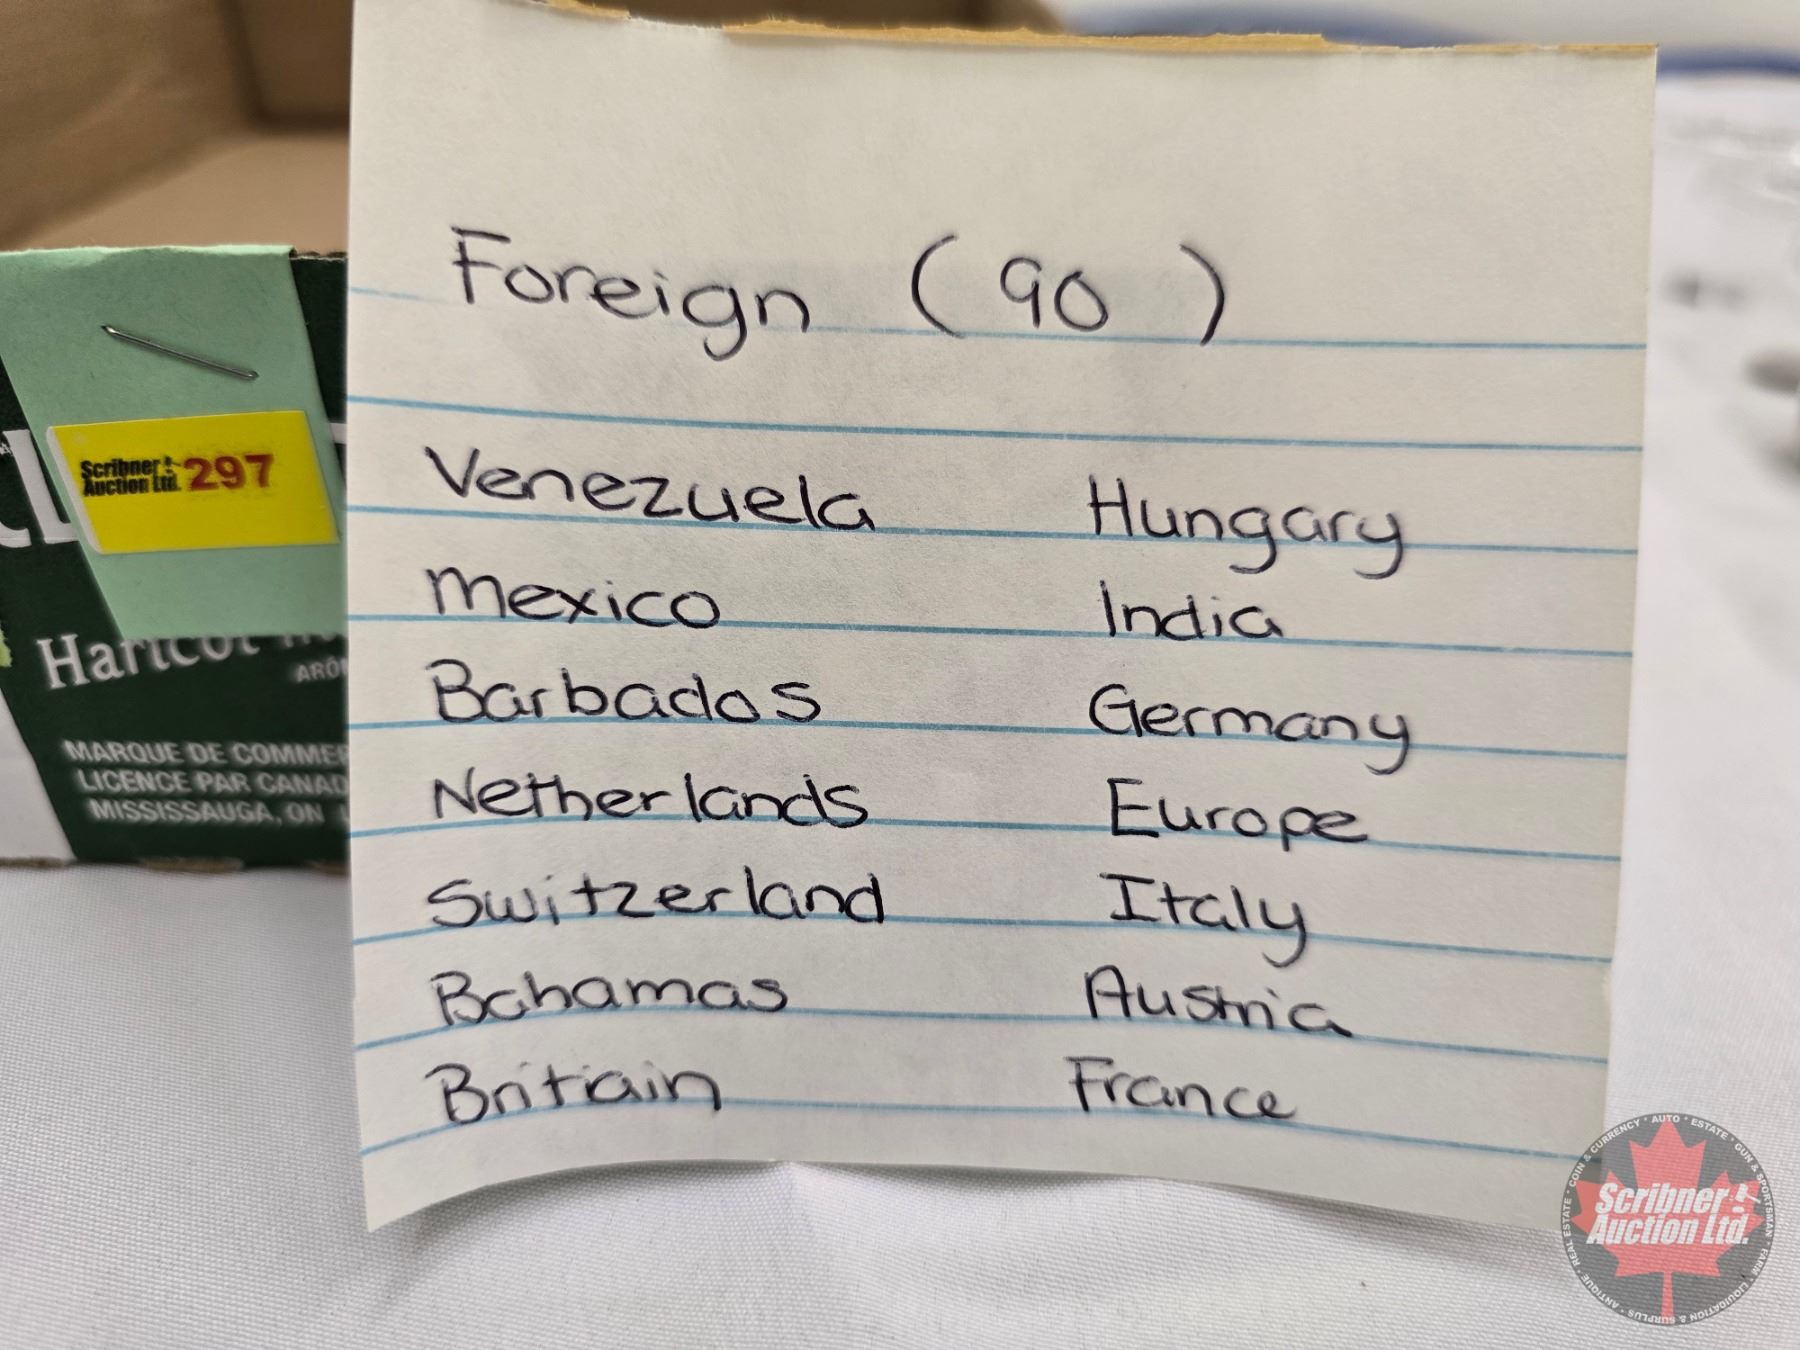 Foreign (90)
Venezuela
Mexico
Barbados
Netherlands
Switzerland
Bahamas
Britiain
Hungary
India
Germany
Europe
Italy
Austria
France
Scribner
Auction Ltd. 297
Haricot
MARQUE DE COMMER
LICENCE PAR CANAD
MISSISSAUGA, ON
Scribner
Auction Ltd.
COIN & CURRENCY • AUTO • ESTATE • GUN & SPORTSMAN • FARM • LIQUIDATION & SURPLUS • ANTIQUE • REAL ESTATE